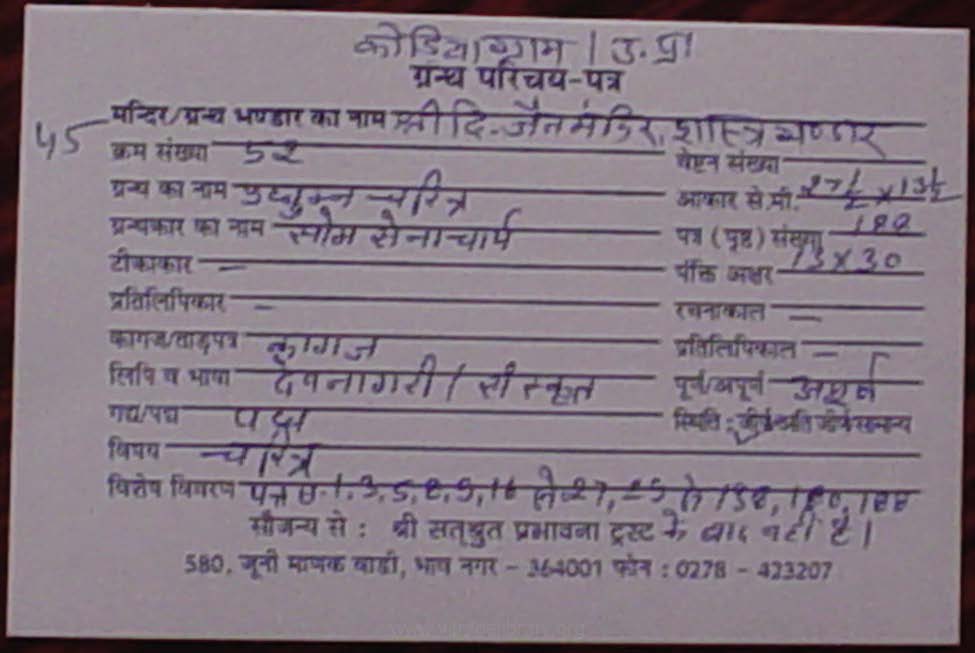 कोडियागाम / उ.प्र
ग्रन्थ परिचय-पत्र
मन्दिर/ग्रन्थ भण्डार का नाम श्री दि. जैन मंदिर, शास्त्र भण्डार
45
क्रम संख्या 52 वेष्टन संख्या
ग्रन्थ का नाम प्रद्युम्न चरित्र आकार से.मी. 27½ × 13½
ग्रन्थकार का नाम सोम सेनाचार्य पत्र (पृष्ठ) संख्या
टीकाकार — पंक्ति अक्षर 13 × 30
प्रतिलिपिकार — रचनाकाल —
कागज/ताड़पत्र कागज प्रतिलिपिकाल —
लिपि व भाषा देवनागरी / संस्कृत पूर्ण/अपूर्ण अपूर्ण
गद्य/पद्य पद्य स्थिति : जीर्ण/अति जीर्ण/सामान्य
विषय चरित्र
विशेष विवरण पत्र
सौजन्य से : श्री सत्श्रुत प्रभावना ट्रस्ट के बाद नहीं है।
580, जूनी माणक वाडी, भाव नगर - 364001 फोन : 0278 - 423207